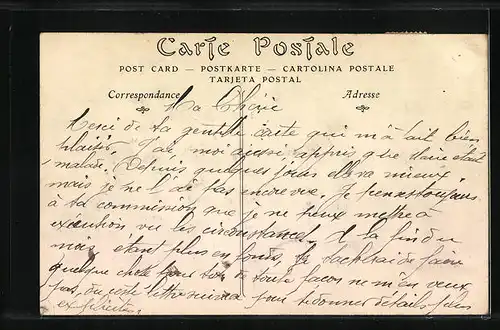 Carte Postale
POST CARD — POSTKARTE — CARTOLINA POSTALE
TARJETA POSTAL
Correspondance Adresse
Ma Chérie
Merci de ta gentille carte qui m'a fait bien
plaisir. J'ai moi aussi appris que Claire était
malade. Depuis quelques jours elle va mieux
mais je ne l' pas encore vue. Je pense toujours
à ta commission que je ne peux mettre à
exécution vu les circonstances. A la fin du
mois étant plus en fonds, je tacherai de faire
quelque chose pour toi de toute façon ne m'en veux
pas, une lettre suivra pour te donner détails plus
explicites